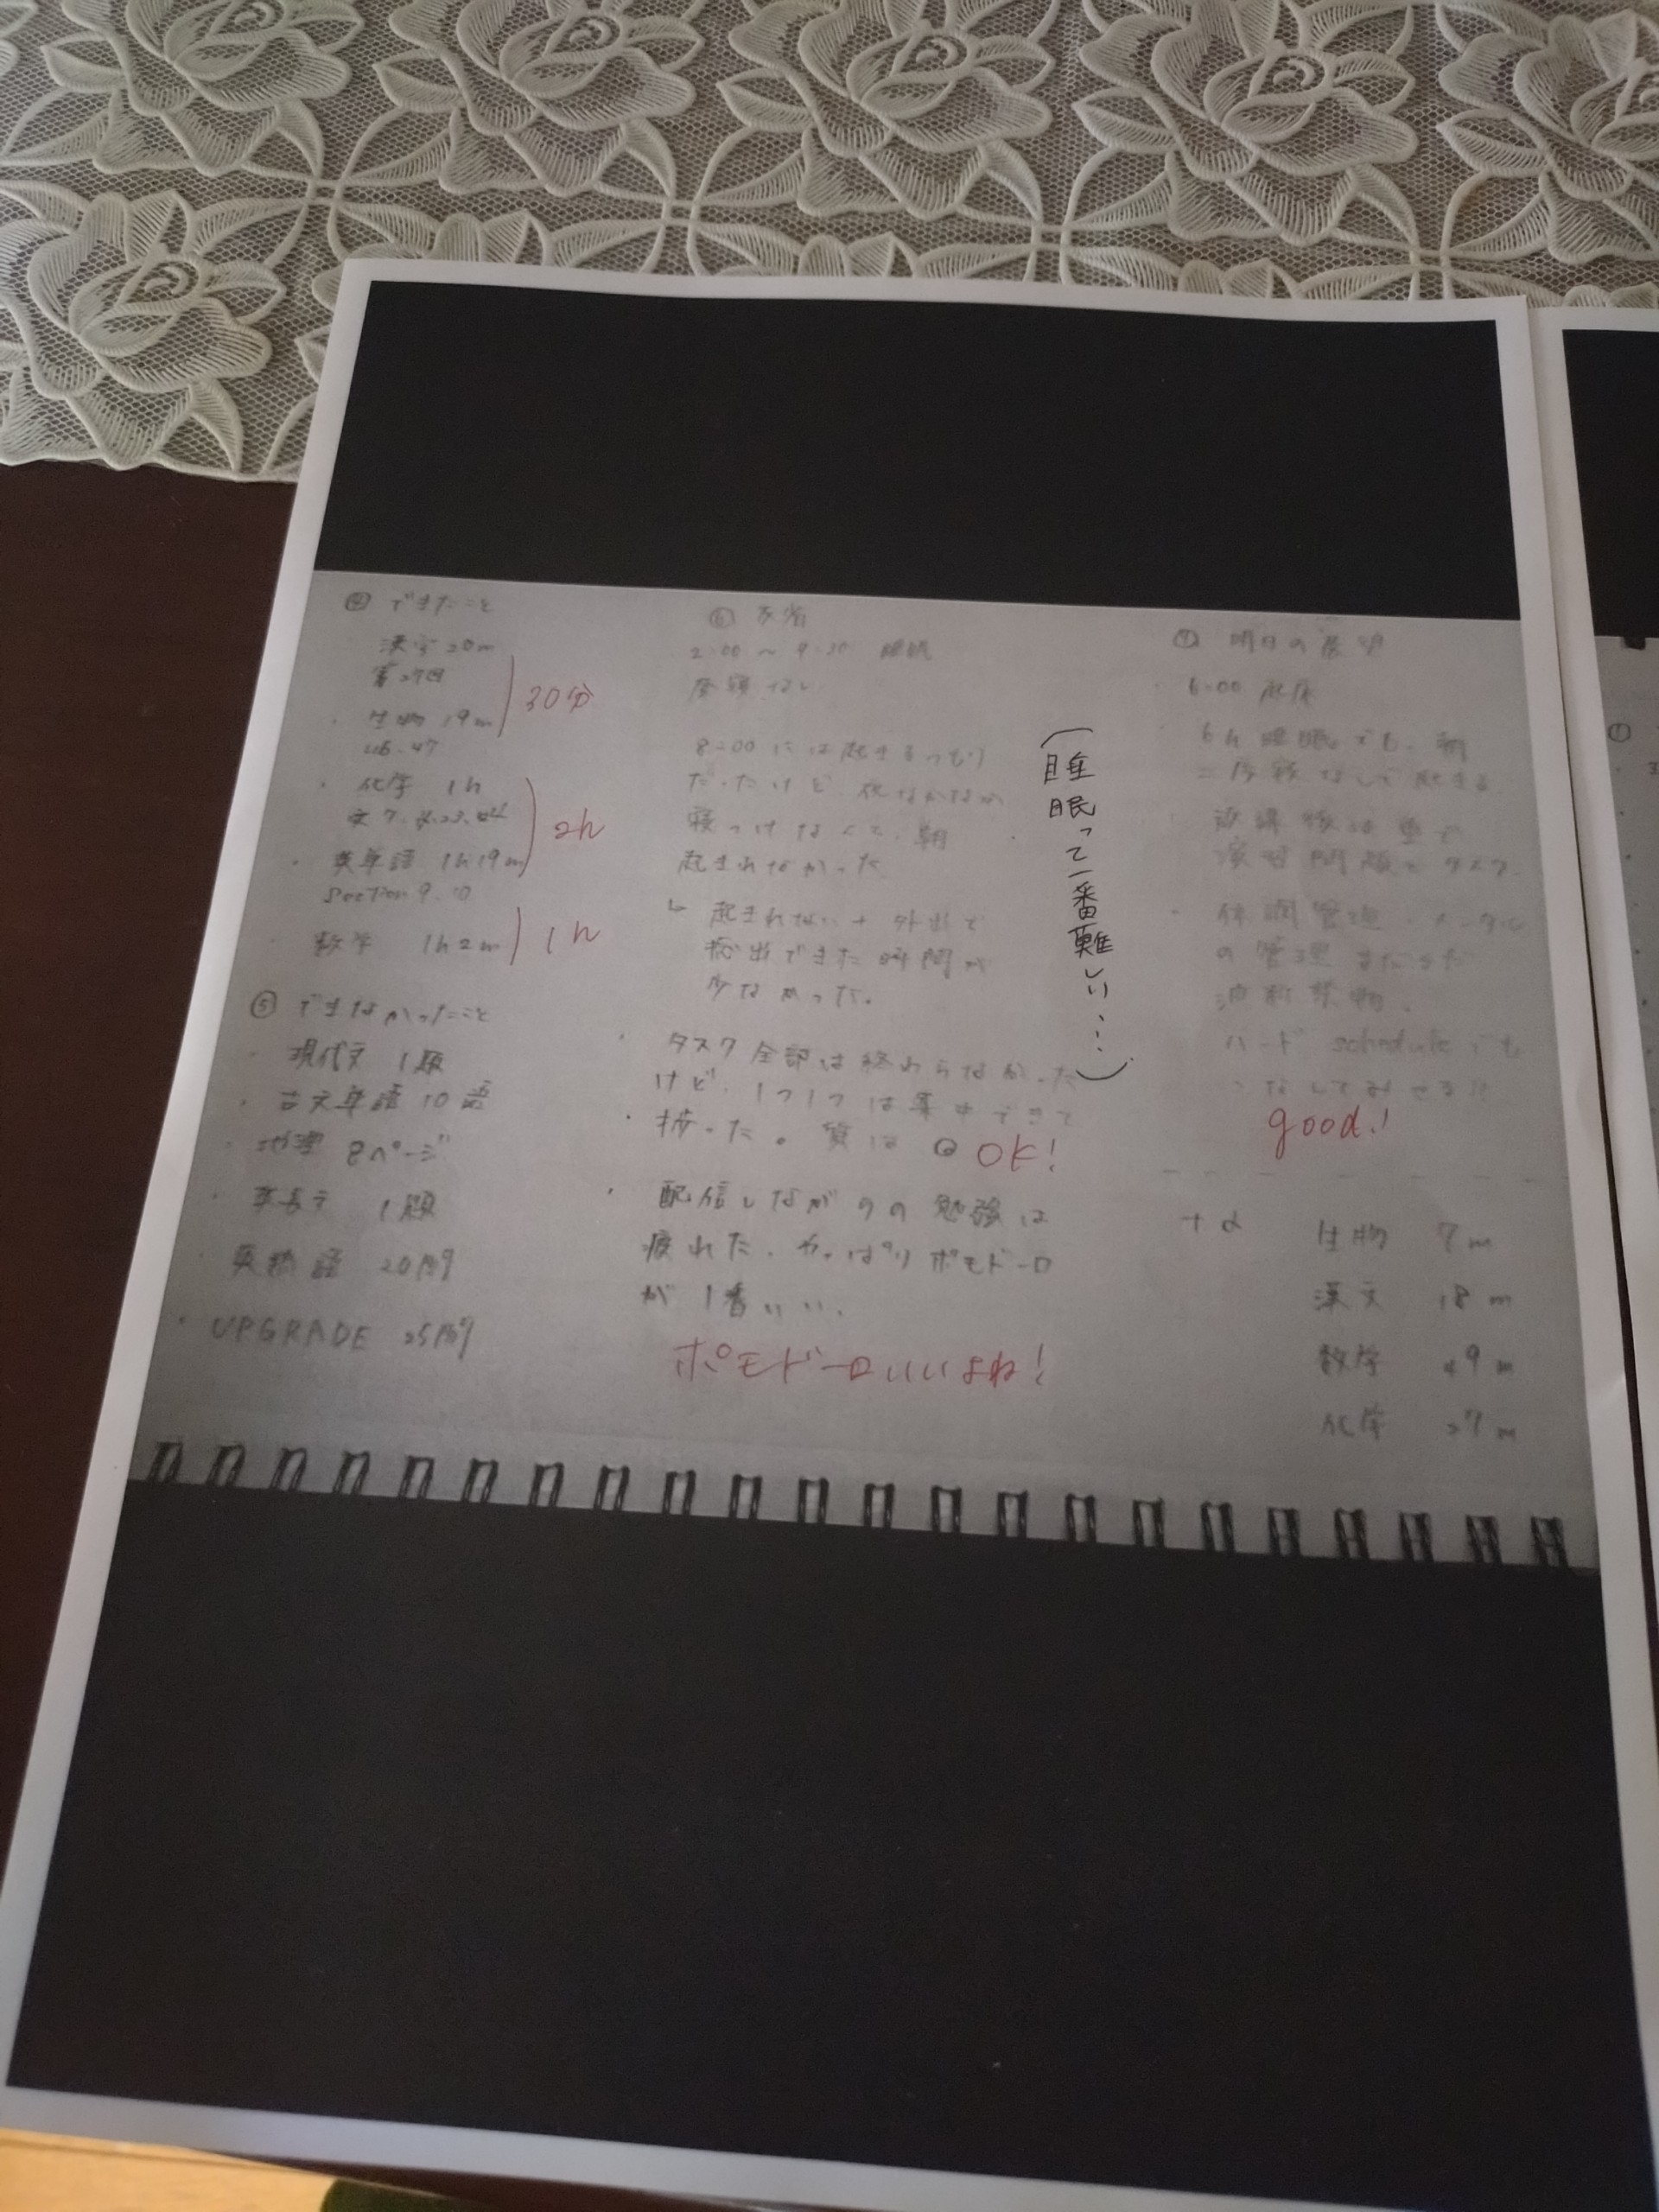 ④ できたこと
漢字 20m
第27回
30分
・ 生物 19m
46.47
・ 化学 1h
2h
・ 英単語 1h19m
Section 9.10
・ 数学 1h2m
1h
⑤ できなかったこと
・ 現代文 1題
・ 古文単語 10語
・ 地理 8ページ
・ 英長文 1題
・ 英熟語 20問
・ UPGRADE 25問
⑥ 反省
2:00 〜 9:30 睡眠
昼寝なし
8:00には起きるつもり
だったけど、夜なかなか
寝つけなくて、朝
起きれなかった
↳ 起きれない + 外出で
捻出できた時間が
少なかった。
・ タスク全部は終わらなかった
けど、1つ1つは集中できて
・ 捗った。質は◎
OK!
・ 配信しながらの勉強は
疲れた、やっぱりポモドーロ
が1番いい、
ポモドーロいいよね!
(睡眠って一番難しい…)
⑦ 明日の展望
・ 6:00 起床
・ 6h睡眠でも、朝
二度寝なしで起きる
・ 演習問題のタスク
・ 体調管理・メンタル
の管理
ハード scheduleでも
こなしてみせる
good!
+α 生物 7m
漢文 18m
数学 49m
化学 27m